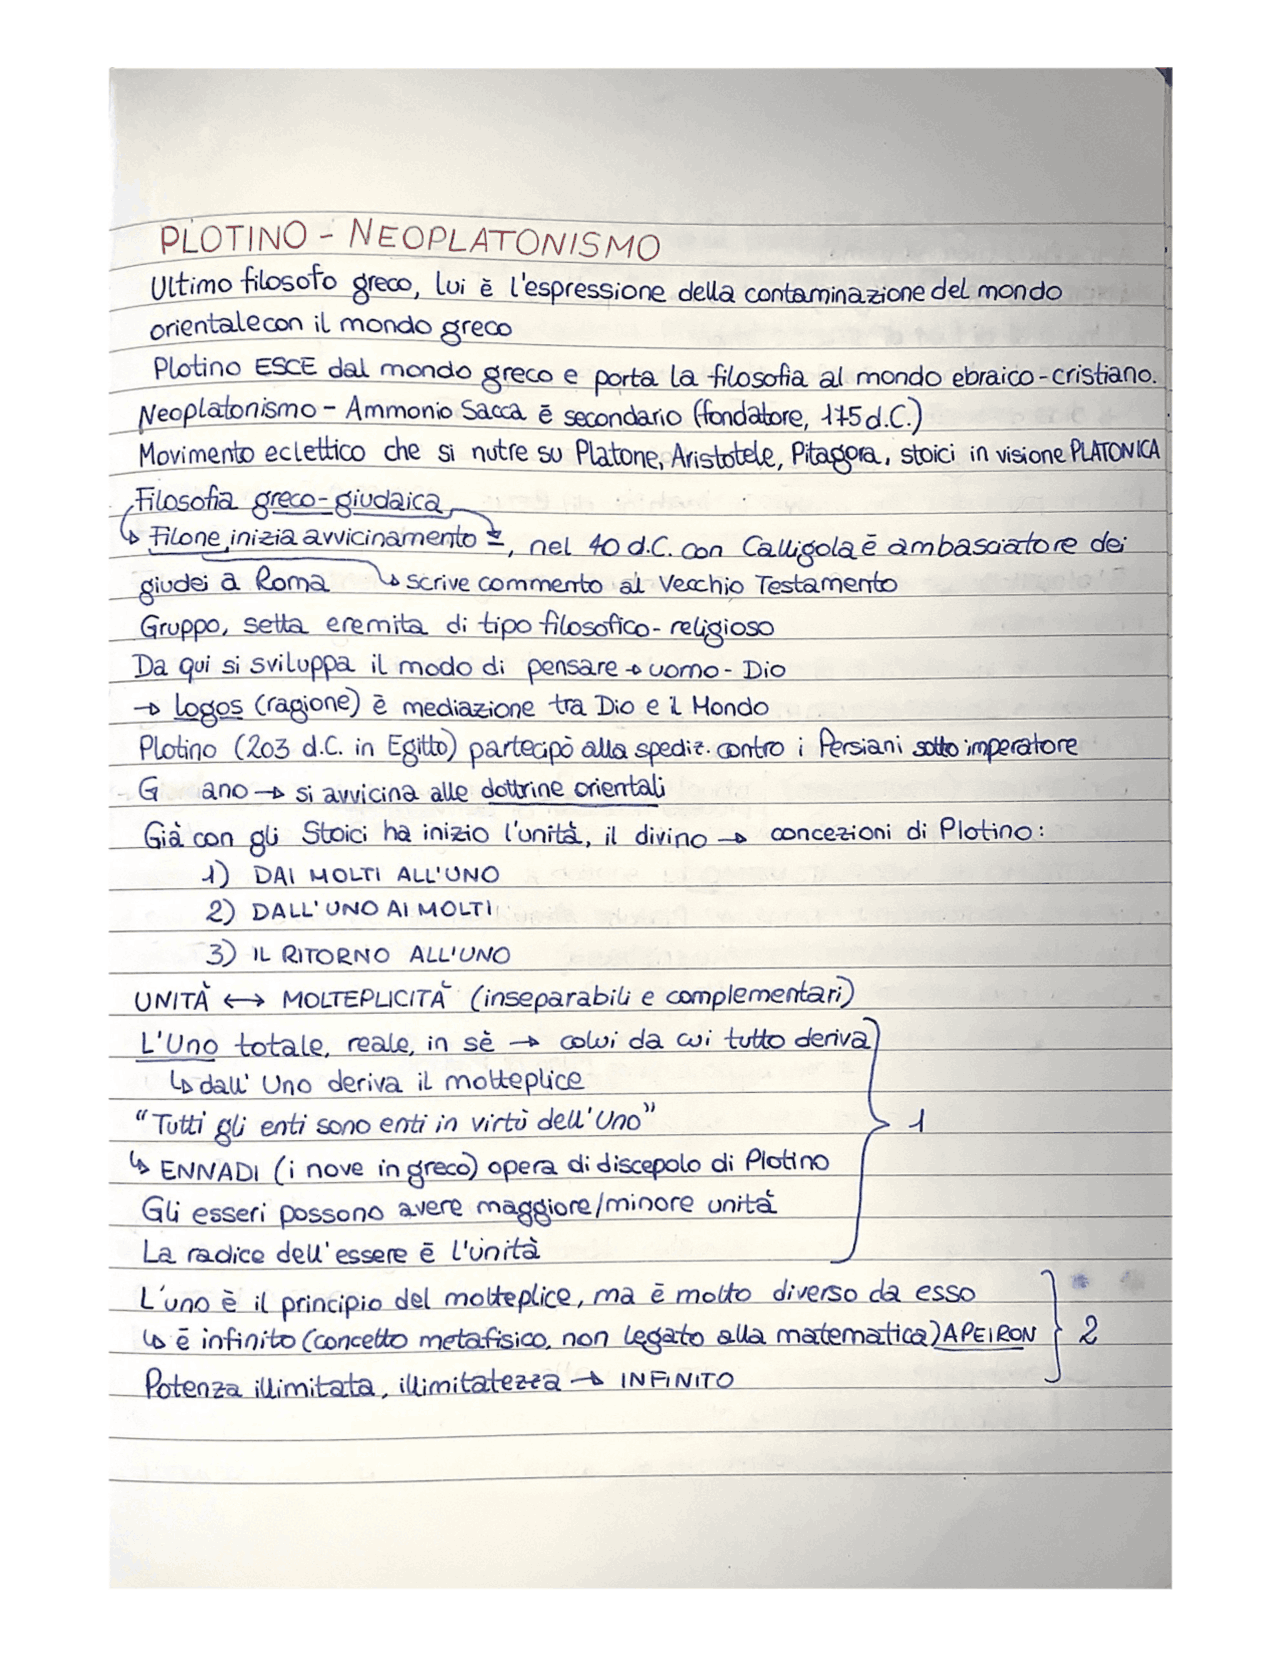 PLOTINO - NEOPLATONISMO
Ultimo filosofo greco, lui è l'espressione della contaminazione del mondo
orientale con il mondo greco
Plotino ESCE dal mondo greco e porta la filosofia al mondo ebraico-cristiano.
Neoplatonismo - Ammonio Sacca è secondario (fondatore, 175 d.C.)
Movimento eclettico che si nutre su Platone, Aristotele, Pitagora, stoici in visione PLATONICA
Filosofia greco-giudaica
↳ Filone inizia avvicinamento, nel 40 d.C. con Calligola è ambasciatore dei
giudei a Roma ↳ scrive commento al Vecchio Testamento
Gruppo, setta eremita di tipo filosofico-religioso
Da qui si sviluppa il modo di pensare → uomo - Dio
→ logos (ragione) è mediazione tra Dio e il Mondo
Plotino (203 d.C. in Egitto) partecipò alla spediz. contro i Persiani sotto imperatore
G ano → si avvicina alle dottrine orientali
Già con gli Stoici ha inizio l'unità, il divino → concezioni di Plotino:
1) DAI MOLTI ALL'UNO
2) DALL'UNO AI MOLTI
3) IL RITORNO ALL'UNO
UNITÀ ↔ MOLTEPLICITÀ (inseparabili e complementari)
L'Uno totale, reale, in sè → colui da cui tutto deriva
↳ dall'Uno deriva il molteplice
"Tutti gli enti sono enti in virtù dell'Uno" 1
↳ ENNADI (i nove in greco) opera di discepolo di Plotino
Gli esseri possono avere maggiore/minore unità
La radice dell'essere è l'unità
L'uno è il principio del molteplice, ma è molto diverso da esso
↳ è infinito (concetto metafisico, non legato alla matematica) APEIRON 2
Potenza illimitata, illimitatezza → INFINITO